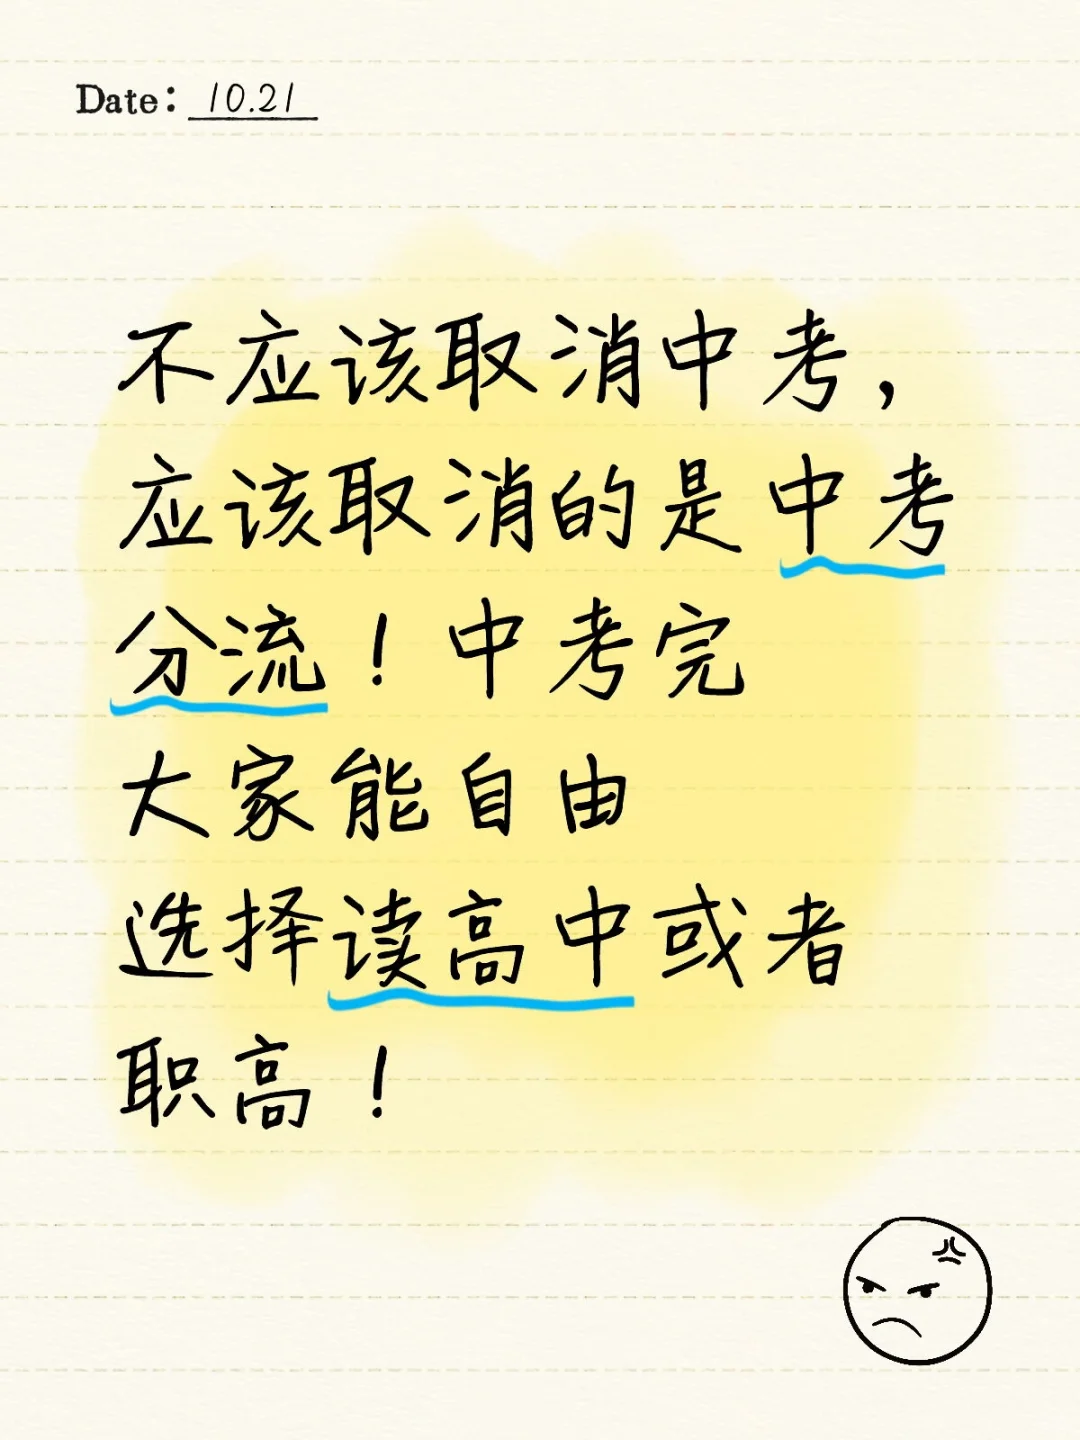 Date: 10.21
不应该取消中考，
应该取消的是中考
分流！中考完
大家能自由
选择读高中或者
职高！